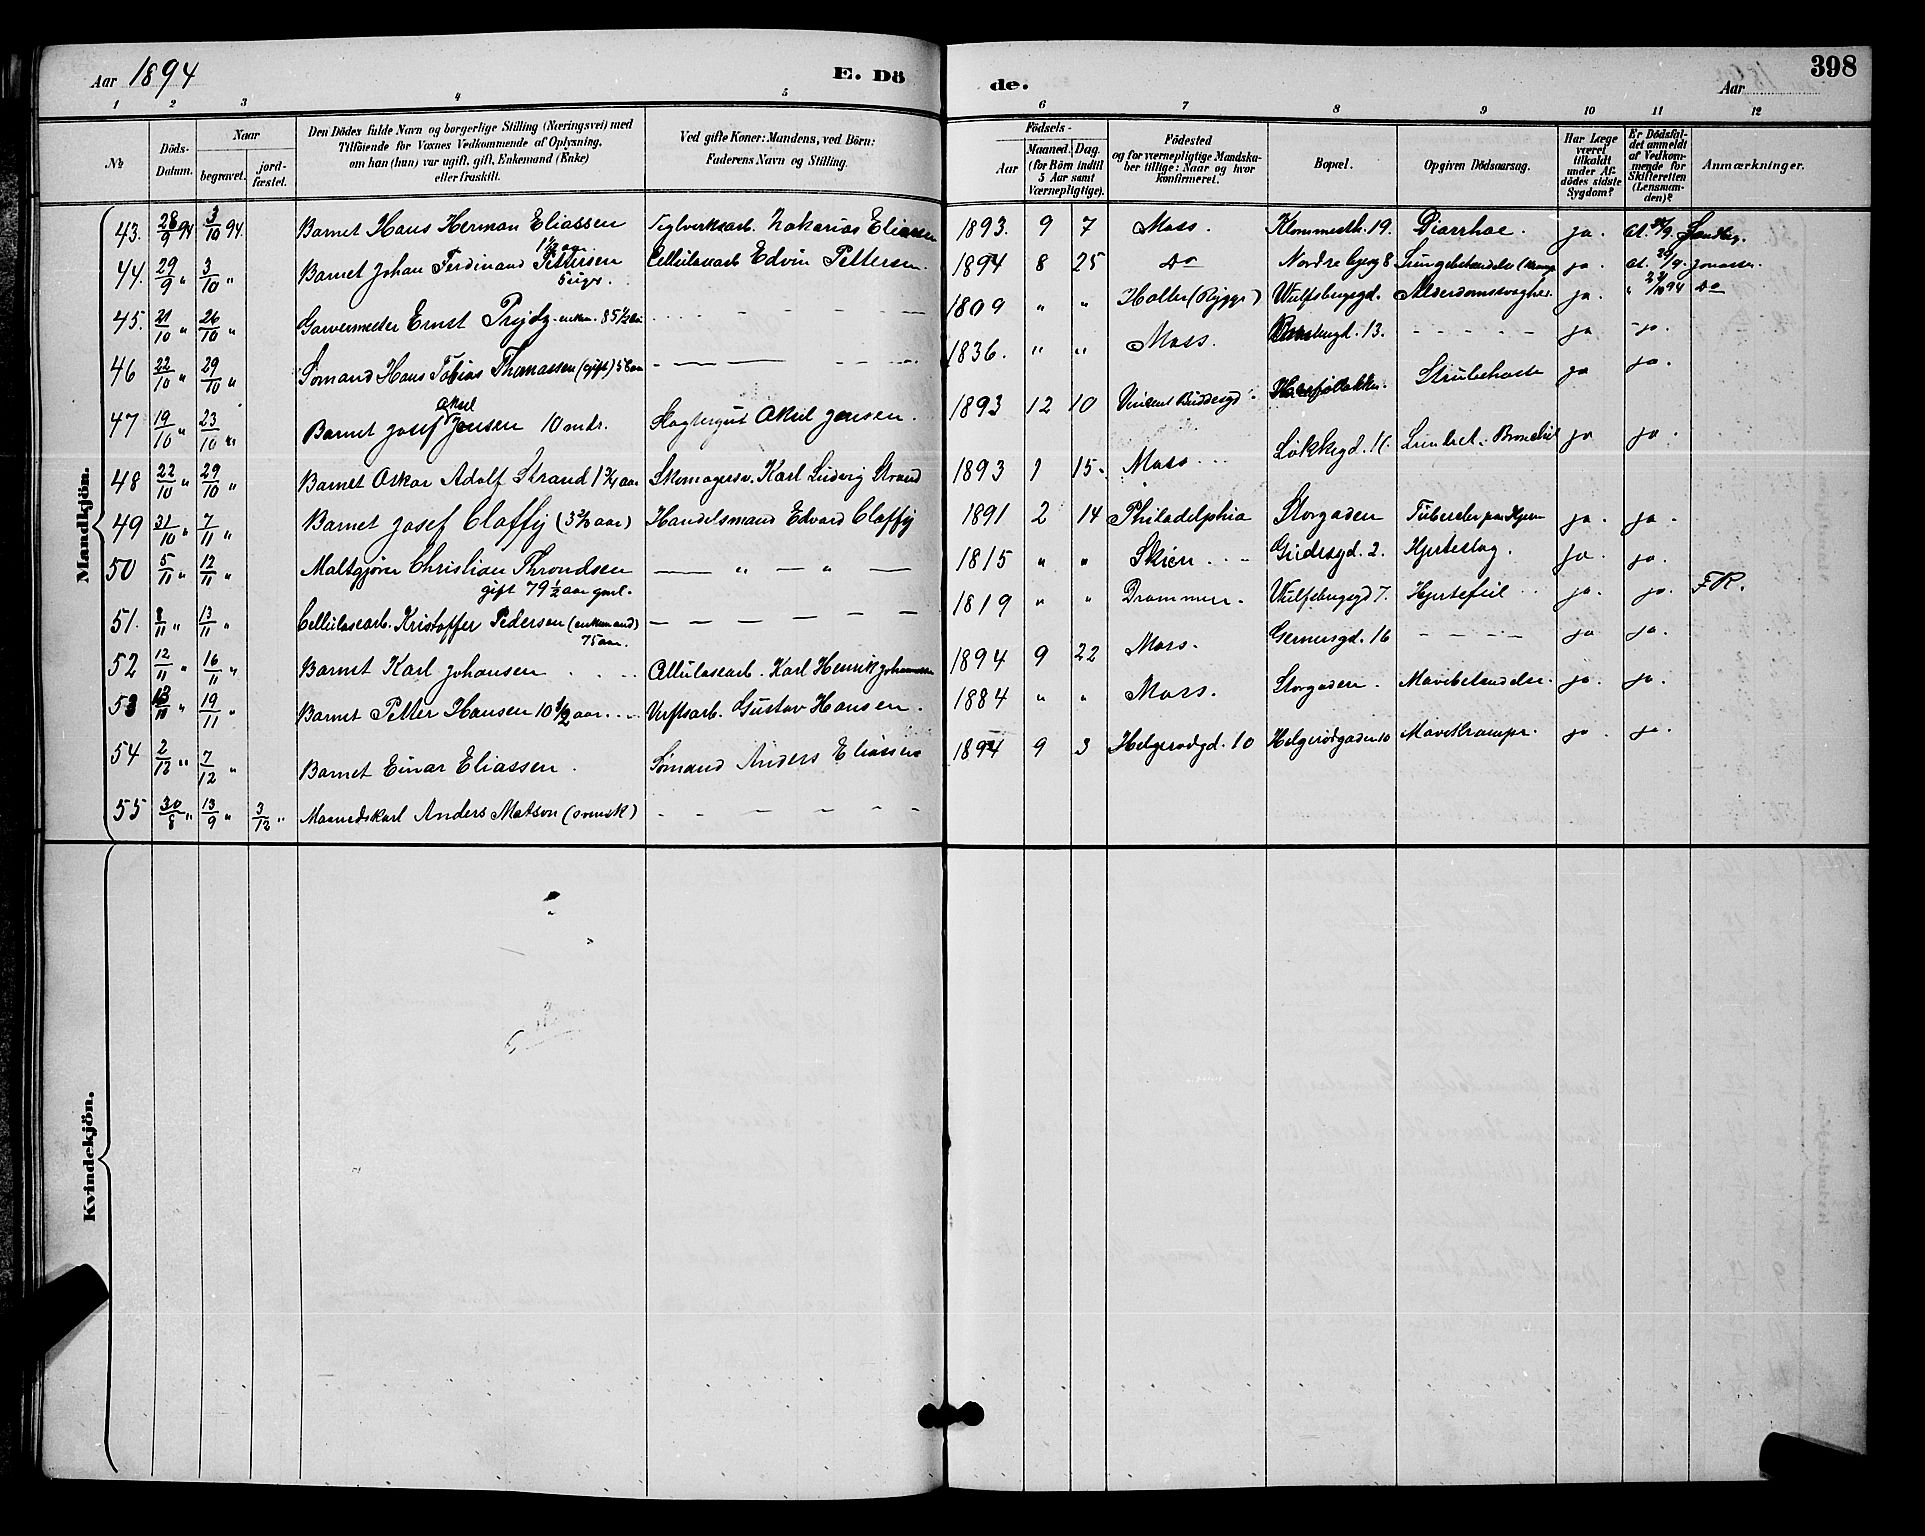 Aar 1894
E. Dö
de.
398
Aar
1 2 3 4 5 6 7 8 9 10 11 12
№
Döds-
Datum.
Naar
begravet.
jord-
fæstet.
Den Dödes fulde Navn og borgerlige Stilling (Næringsvei) med
Tilföiende for Voxnes Vedkommende af Oplysning,
om han (hun) var ugift, gift, Enkemand (Enke)
eller fraskilt.
Ved gifte Koner: Mandens, ved Börn:
Faderens Navn og Stilling.
Födsels-
Aar
Maaned. Dag.
(for Börn indtil
5 Aar samt
Værnepligtige).
Födested
og for værnepligtige Mandska-
ber tillige: Naar og hvor
konfirmeret.
Bopæl.
Opgiven Dödsaarsag.
Har Læge
været
tilkaldt
under Af-
dödes sidste
Sygdom?
Er Dödsfal-
det anmeldt
af Vedkom-
mende for
Skifteretten
(Lensman-
den)?
Anmærkninger.
Mandkjön.
43. 28/9 94 3/10 94. Barnet Hans Herman Eliassen 1½ aar. Teglverksarb. Zakarias Eliassen 1893. 9 7 Moss. 19. Diarrhoe. ja.
44. 29/9 " 3/10 " Barnet Johan Ferdinand Pettersen 5 uger. Cellulosearb Edvin Pettersen. 1894 8 25 Do Nordre 8 ja.
45. 21/10 " 26/10 " Garvermester Ernst enkem. 85½ aar 1809 " " Holter (Rygge) Wulfsbergsgd. ja. Do
46 22/10 " 29/10 " Sømand Hans Tobias Thomassen (gift) 58 aar 1836. " " Moss. 13. ja ja.
47 19/10 " 23/10 " Barnet Josef Aksel Jensen 10 mdr. Slagtergut Aksel Jensen. 1893 12 10 Vincent Buddesgd. Strubehoste ja ja.
48 22/10 " 29/10 " Barnet Oskar Adolf Strand 1¾ aar Skomagersv. Karl Ludvig Strand 1893 1 15. Moss Løkkegd. ja ja.
49 31/10 " 7/11 " Barnet Josef Claffy (3⅔ aar) Handelsmand Edvard Claffy 1891 2 14 Philadelphia Storgaden ja. ja.
50 5/11 " 12/11 " Maltgjører Christian Throndsen gift 79½ aar gml. 1815 " " Skien Gudesgd. 2. Hjerteslag. ja. ja.
51. 8/11 " 13/11 " Cellulosearb. Kristoffer Pedersen (enkemand) 75 aar. 1819 " " Drammen. Wulfsbergsgd 7. Hjertefeil ja. ja. FR.
52 12/11 " 16/11 " Barnet Karl Johansen Cellulosearb. Karl Henrik Johannessen 1894 9 22 Moss. Gernersgd. 16 ja ja.
53 13/10 " 19/11 " Barnet Petter Hansen 10½ aar. Verftsarb. Gustav Hansen. 1884 " " Moss. Storgaden. Mavebetændelse. ja. ja.
54 2/12 " 7/12 " Barnet Einar Eliassen. Sømand Anders Eliassen 1894 9 3 Helgerødgd. 10 Helgerødgaden 10 Mavekrampe. ja ja.
55 30/8 " 13/9 " 3/12 " Maanedskarl Anders Matson (svensk)
Kvindekjön.